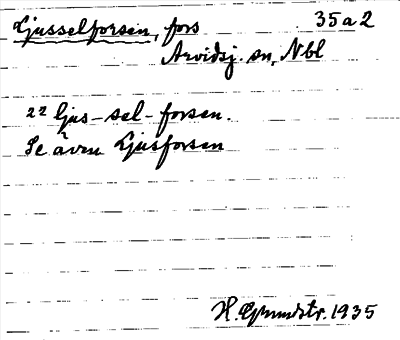 Ljusselforsen, fors 35a2
Arvidsj. sn, Nbl
22 ljus-sel-forsen.
Se även Ljusforsen
H. 1935